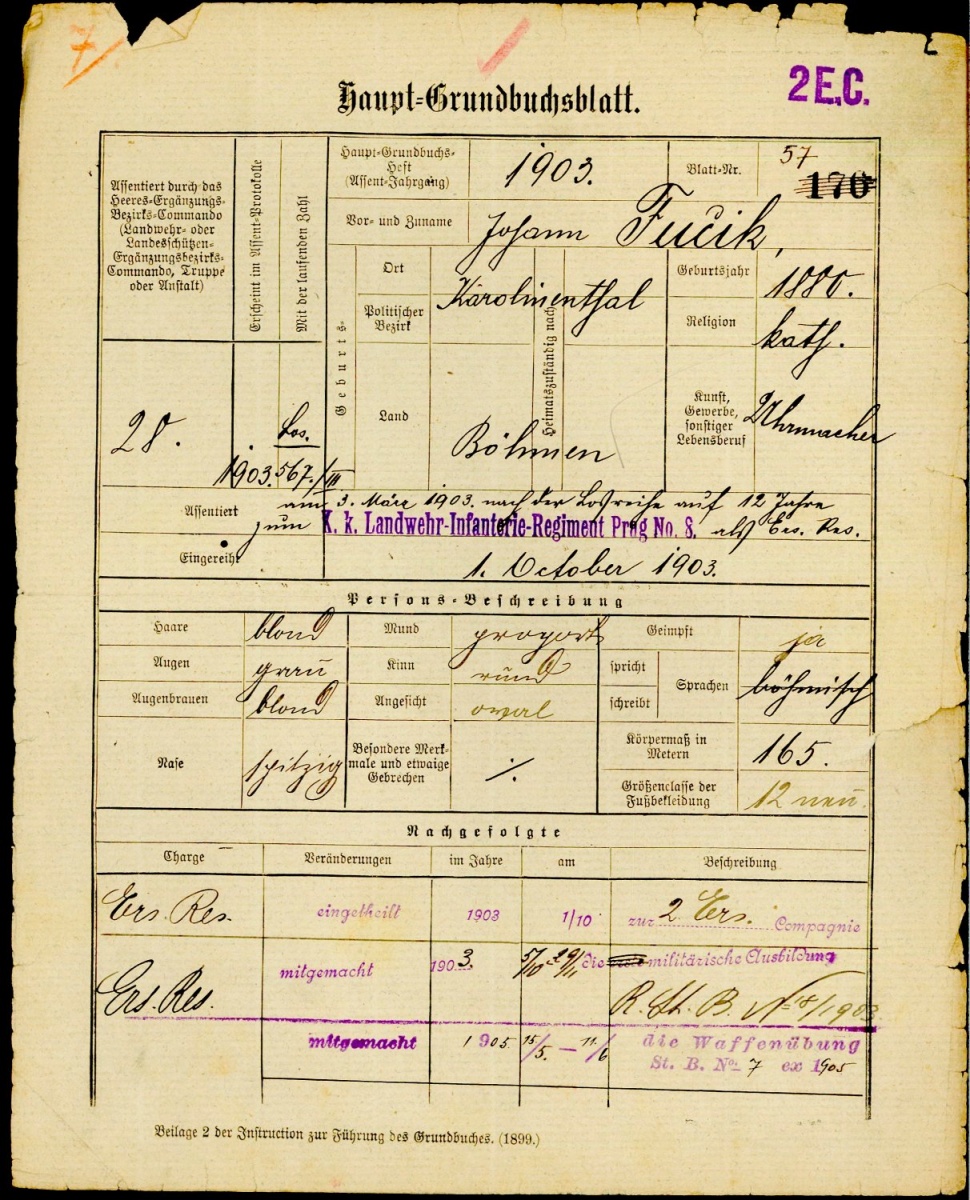 7.
2 E.C.
Haupt-Grundbuchsblatt.
Assentiert durch das Heeres-Ergänzungs-Bezirks-Commando (Landwehr- oder Landesschützen-Ergänzungsbezirks-Commando, Truppe oder Anstalt)
Erscheint im Assent-Protokolle
Mit der laufenden Zahl
Haupt-Grundbuchs-Heft (Assent-Jahrgang) 1903. Blatt-Nr. 57 176
Vor- und Zuname Johann Fučik,
Geburts-
Ort Karolinenthal
Politischer Bezirk
Land Böhmen
Heimatszuständig nach
Geburtsjahr 1880.
Religion kath.
Kunst, Gewerbe, sonstiger Lebensberuf Uhrmacher
28. 1903. Los. 567./III
Assentiert am 3. März 1903. nach der Losreihe auf 12 Jahre
zum K. k. Landwehr-Infanterie-Regiment Prag No. 8. als Ers. Res.
Eingereiht 1. October 1903.
Persons-Beschreibung
Haare blond Mund proport Geimpft ja
Augen grau Kinn rund spricht schreibt Sprachen böhmisch
Augenbrauen blond Angesicht oval
Nase spitzig Besondere Merkmale und etwaige Gebrechen ./. Körpermaß in Metern 165.
Größenclasse der Fußbekleidung 12 neu.
Nachgefolgte
Charge Veränderungen im Jahre am Beschreibung
Ers. Res. eingetheilt 1903 1/10 zur 2. Ers. Compagnie
mitgemacht 1903. 5/10 die militärische Ausbildung
Ers. Res. R. St. B. N 18/1903
mitgemacht 1905 15/5. – 11/6 die Waffenübung
St. B. No. 7 ex 1905
Beilage 2 der Instruction zur Führung des Grundbuches. (1899.)